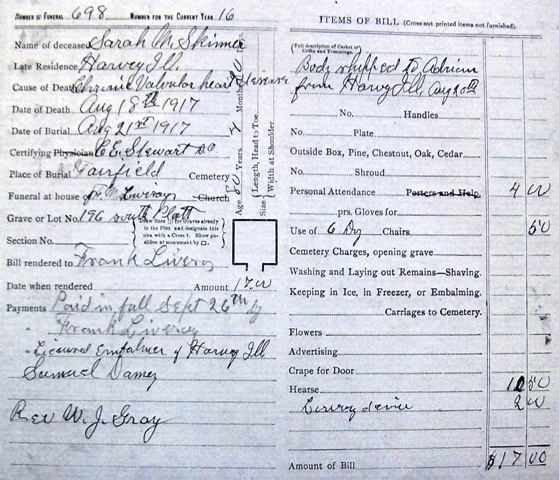 NUMBER OF FUNERAL 698 NUMBER FOR THE CURRENT YEAR 16
Name of deceased Sarah M Skinner
Late Residence Harvey Ill.
Cause of Death Chronic Valvular heart disease
Date of Death Aug 18th 1917
Date of Burial Aug 21st 1917
Certifying Physician C E Stewart
Place of Burial Fairfield Cemetery
Funeral at house of Church
Grave or Lot No. 196 south Platt
Draw lines for Graves already in the Plot and designate this one with a Cross †. Show position of monument by □.
Section No.
Bill rendered to Frank Liveroy
Date when rendered Amount 17.00
Payments Paid in full Sept 26th by
" Frank Liveroy
" Licensed Embalmer of Harvey Ill
Samuel
Rev W. J. Gray
Age 80 Years 4 Months
Size Length, Head to Toe
Width at Shoulder
ITEMS OF BILL (Cross out printed items not furnished).
(Full description of Casket or Coffin and Trimmings.)
Body shipped to Adrian
from Harvey Ill, Aug 20th
No. Handles
No. Plate
Outside Box, Pine, Chestnut, Oak, Cedar
No. Shroud
Personal Attendance Porters and Help, 4 00
prs. Gloves for
Use of 6 Dz Chairs 50
Cemetery Charges, opening grave
Washing and Laying out Remains—Shaving.
Keeping in Ice, in Freezer, or Embalming.
Carriages to Cemetery.
Flowers
Advertising
Crape for Door
Hearse 10 50
2 00
Amount of Bill $17 00